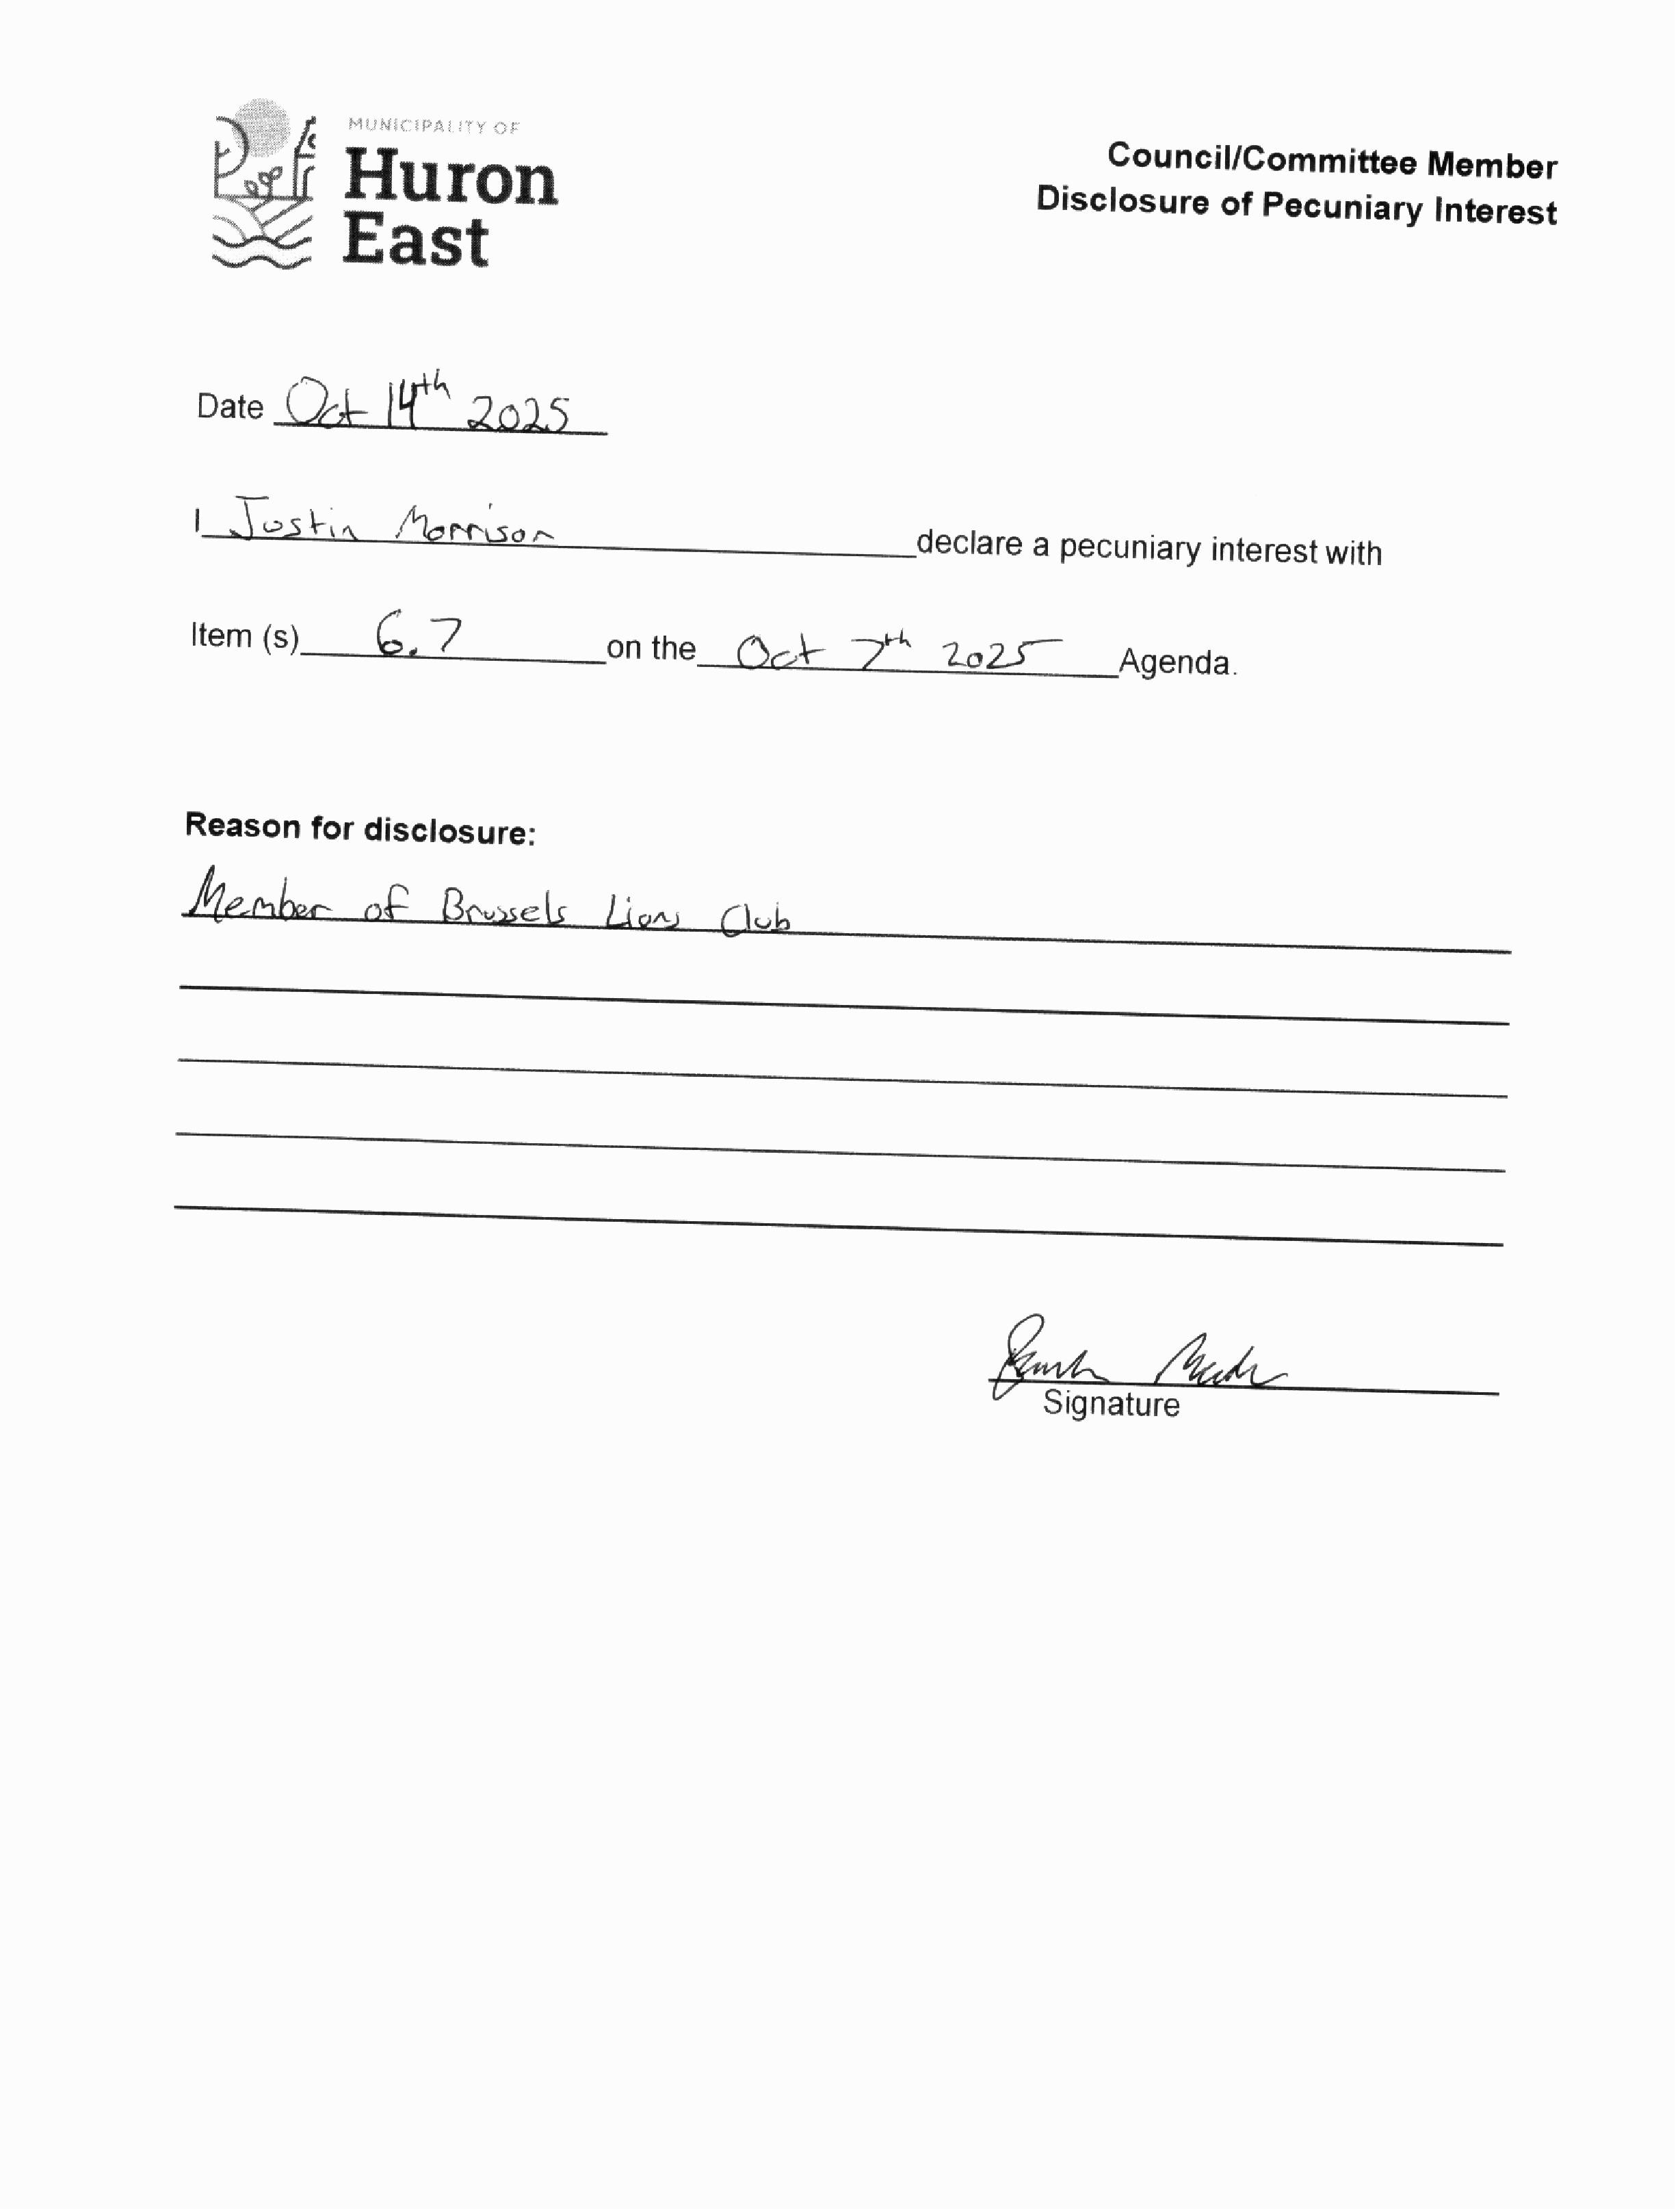 MUNICIPALITY OF
Huron
East
Council/Committee Member
Disclosure of Pecuniary Interest
Date Oct 14th 2025
I Justin Morrison declare a pecuniary interest with
Item (s) 6.7 on the Oct 7th 2025 Agenda.
Reason for disclosure:
Member of Brussels Lions Club
Signature